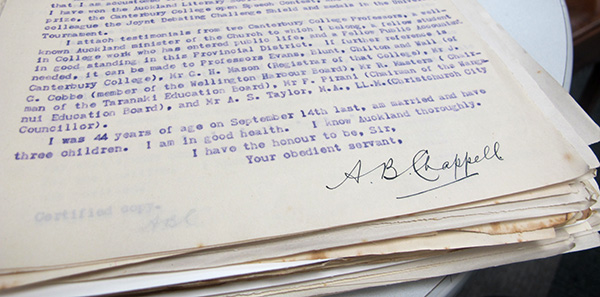 that I am accustomed
I have won the Auckland Literary
prize, the Canterbury College
colleague the Joynt Debating Challenge and medals in the University
Tournament.
I attach testimonials from two Canterbury College Professors, a well-
known Auckland minister of the Church to which I belong, a fellow student
in College work who has entered public life, and a Fellow Public Accountant,
in good standing in this Provincial District. If further reference is
needed, it can be made to Professors Evans, Blunt, Chilton and Wall (of
Canterbury College), Mr C. H. Mason (Registrar of that College), Mr J.
G. Cobbe (member of the Wellington Harbour Board), Mr R. Masters (Chair-
man of the Taranaki Education Board), Mr F. Pirani (Chairman of the Wanga-
nui Education Board), and Mr A. S. Taylor, M.A., LL.M.(Christchurch City
Councillor).
I was 44 years of age on September 14th last, am married and have
three children. I am in good health. I know Auckland thoroughly.
I have the honour to be, Sir,
Your obedient servant,
A. B. Chappell
Certified copy.
ABC